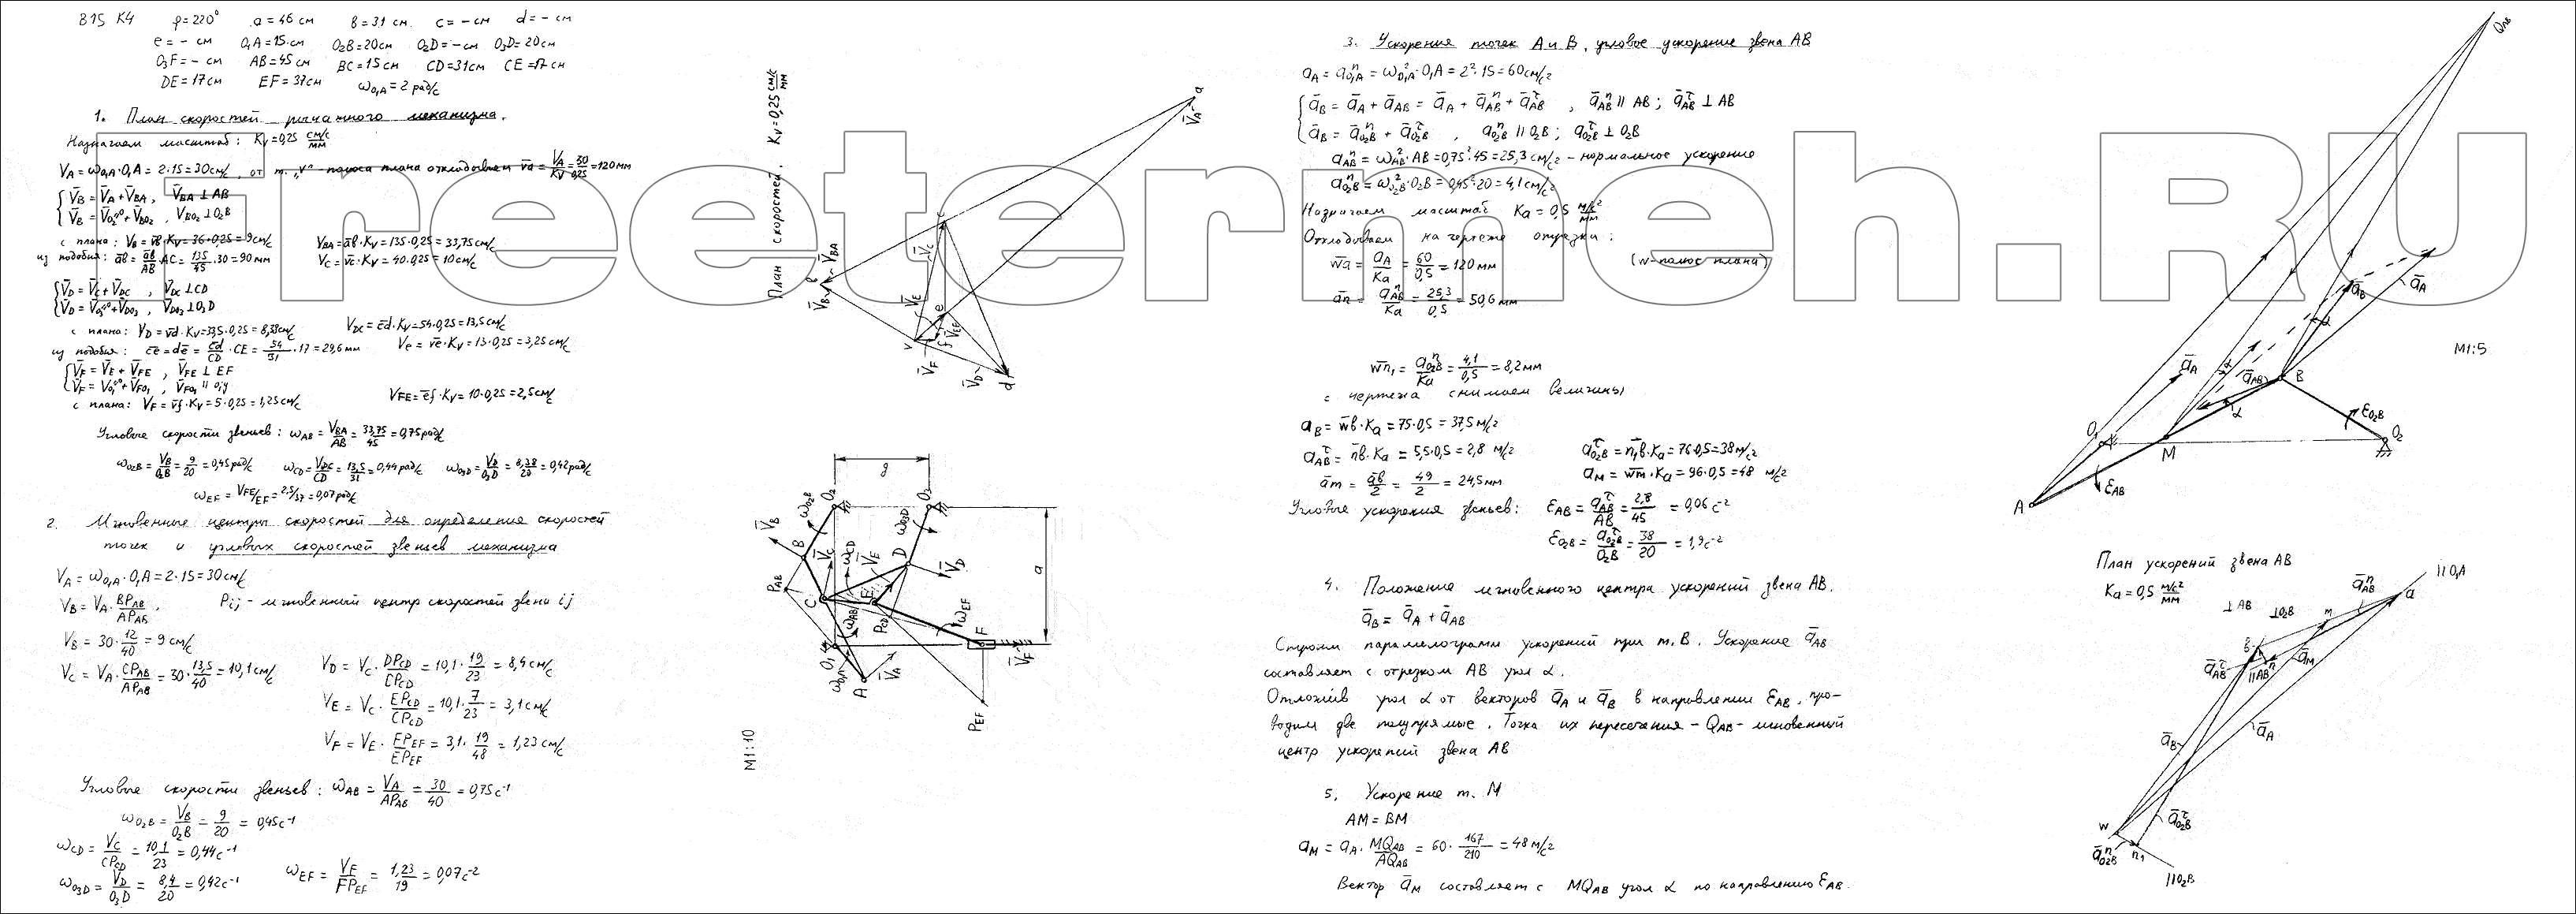 В15 К4 φ=220° a=46 см в=31 см c=-см d=-см
e=-см O₁A=15 см O₂B=20см O₂D=-см O₃D=20см
O₃F=-см AB=45 см BC=15 см CD=31см CE=17 см
DE=17 см EF=37см ω₀₁A=2 рад/с
1. План скоростей рычажного механизма.
Назначаем масштаб: Kv=0,25 см/с/мм
VA=ω₀₁A·O₁A=2·15=30см/с, от т. „v" полюса плана откладываем v̄a=VA/Kv=30/0,25=120мм
{V̄B=V̄A+V̄BA, V̄BA⊥AB
V̄B=V̄O₂⁼⁰+V̄BO₂, V̄BO₂⊥O₂B
с плана: VB=v̄в·Kv=36·0,25=9см/с VBA=āв·Kv=135·0,25=33,75см/с
из подобия: āв=ав/AB·AC=135/45·30=90мм VC=v̄c·Kv=40·0,25=10см/с
{V̄D=V̄C+V̄DC, V̄DC⊥CD
V̄D=V̄O₃⁼⁰+V̄DO₃, V̄DO₃⊥O₃D
с плана: VD=v̄d·Kv=33,5·0,25=8,38см/с VDC=c̄d·Kv=54·0,25=13,5см/с
из подобия: c̄e=d̄e=cd/CD·CE=54/31·17=29,6мм Ve=v̄e·Kv=13·0,25=3,25см/с
{V̄F=V̄E+V̄FE, V̄FE⊥EF
V̄F=V̄O₁⁼⁰+V̄FO₁, V̄FO₁ || O₁y
с плана: VF=v̄f·Kv=5·0,25=1,25см/с VFE=ēf·Kv=10·0,25=2,5см/с
Угловые скорости звеньев: ωAB=VBA/AB=33,75/45=0,75рад/с
ωO₂B=VB/O₂B=9/20=0,45рад/с ωCD=VDC/CD=13,5/31=0,44рад/с ωO₃D=VD/O₃D=8,38/20=0,42рад/с
ωEF=VFE/EF=2,5/37=0,07рад/с
2. Мгновенные центры скоростей для определения скоростей
точек и угловых скоростей звеньев механизма
VA=ω₀₁A·O₁A=2·15=30см/с
VB=VA·BPAB/APAB. Pij - мгновенный центр скоростей звена ij
VB=30·12/40=9см/с
VC=VA·CPAB/APAB=30·13,5/40=10,1см/с VD=VC·DPCD/CPCD=10,1·19/23=8,4см/с
VE=VC·EPCD/CPCD=10,1·7/23=3,1см/с
VF=VE·FPEF/EPEF=3,1·19/48=1,23см/с
Угловые скорости звеньев: ωAB=VA/APAB=30/40=0,75с⁻¹
ωO₂B=VB/O₂B=9/20=0,45с⁻¹
ωCD=VC/CPCD=10,1/23=0,44с⁻¹
ωO₃D=VD/O₃D=8,4/20=0,42с⁻¹ ωEF=VF/FPEF=1,23/19=0,07с⁻²
План скоростей. Kv=0,25 см/с/мм
a
V̄A
c
V̄C
в
V̄B
V̄BA
V̄E
e
V̄FE
v
f
V̄F
V̄D
d
M1:10
g
a
O₂
O₃
ωO₂B
ωO₃D
V̄B
B
V̄C
ωCD
V̄E
D
V̄D
PAB
C
E
ωAB
PCD
ωEF
F
V̄F
O₁
ωO₁A
A
V̄A
PEF
3. Ускорения точек A и B, угловое ускорение звена AB
aA=aⁿO₁A=ω²O₁A·O₁A=2²·15=60см/с²
{āB=āA+āAB=āA+āⁿAB+āᵗAB, āⁿAB || AB; āᵗAB⊥AB
āB=āⁿO₂B+āᵗO₂B, aⁿO₂B || O₂B; aᵗO₂B⊥O₂B
aⁿAB=ω²AB·AB=0,75²·45=25,3см/с² - нормальное ускорение
aⁿO₂B=ω²O₂B·O₂B=0,45²·20=4,1см/с²
Назначаем масштаб Ka=0,5 м/с²/мм
Откладываем на чертеже отрезки:
w̄a=aA/Ka=60/0,5=120мм (w-полюс плана)
ān=aⁿAB/Ka=25,3/0,5=50,6мм
w̄n₁=aⁿO₂B/Ka=4,1/0,5=8,2мм
с чертежа снимаем величины
aB=w̄в·Ka=75·0,5=37,5м/с²
aᵗAB=n̄в·Ka=5,5·0,5=2,8 м/с² aᵗO₂B=n̄₁в·Ka=76·0,5=38м/с²
ām=āв/2=49/2=24,5мм aM=w̄m·Ka=96·0,5=48 м/с²
Угловые ускорения звеньев: εAB=aᵗAB/AB=2,8/45=0,06с⁻²
εO₂B=aᵗO₂B/O₂B=38/20=1,9с⁻²
4. Положение мгновенного центра ускорений звена AB.
āB=āA+āAB
Строим параллелограмм ускорений при т.B. Ускорение āAB
составляет с отрезком AB угол α.
Отложив угол α от векторов āA и āB в направлении εAB, про-
водим две полупрямые. Точка их пересечения - QAB - мгновенный
центр ускорений звена AB
5. Ускорение т. M
AM=BM
aM=aA·MQAB/AQAB=60·167/210=48м/с²
Вектор āM составляет с MQAB угол α по направлению εAB.
QAB
āB
āA
M1:5
āA
α
āAB
B
α
εO₂B
O₁
O₂
M
εAB
A
План ускорений звена AB
Ka=0,5 м/с²/мм
||O₁A
āⁿAB
a
⊥AB
⊥O₂B
m
в
āM
āᵗAB
||AB
n
āB
āA
w
āᵗO₂B
āⁿO₂B
n₁
||O₂B
Reetermeh.RU